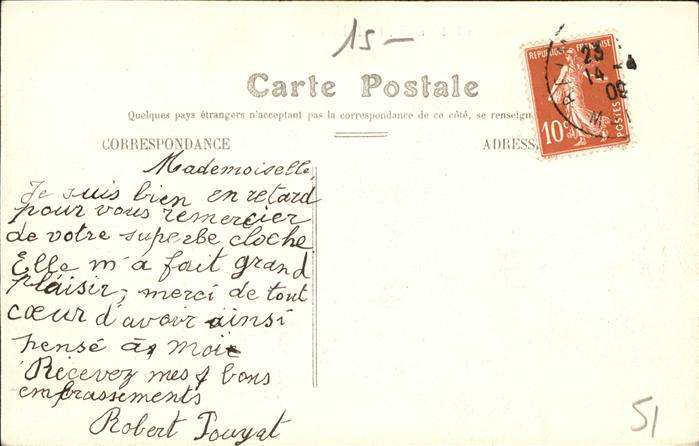 15-
Carte Postale
Quelques pays étrangers n'acceptant pas la correspondance de ce côté, se renseign
CORRESPONDANCE
ADRESS
RÉPUBLIQUE
10c
POSTES
23
14 - 4
09
Mademoiselle,
Je suis bien en retard
pour vous remercier
de votre superbe cloche
Elle m'a fait grand
plaisir, merci de tout
cœur d'avoir ainsi
pensé à moi
Recevez mes bons
embrassements
Robert Touyat
51